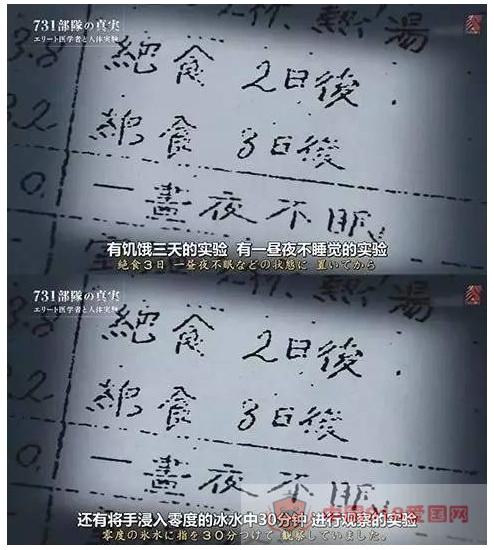 731部隊の真実
エリート医学者と人体実験
熱湯
3.8 絶食 2日後.
3.2 絶食 3日後
0. 一晝夜不眠
有饥饿三天的实验 有一昼夜不睡觉的实验
絶食3日 一昼夜不眠などの状態に 置いてから
731部隊の真実
エリート医学者と人体実験
熱湯
絶食 2日後.
2 絶食 3日後
0. 一晝夜不眠
还有将手浸入零度的冰水中30分钟 进行观察的实验
零度の氷水に指を30分つけて 観察していました。
中国918爱国网